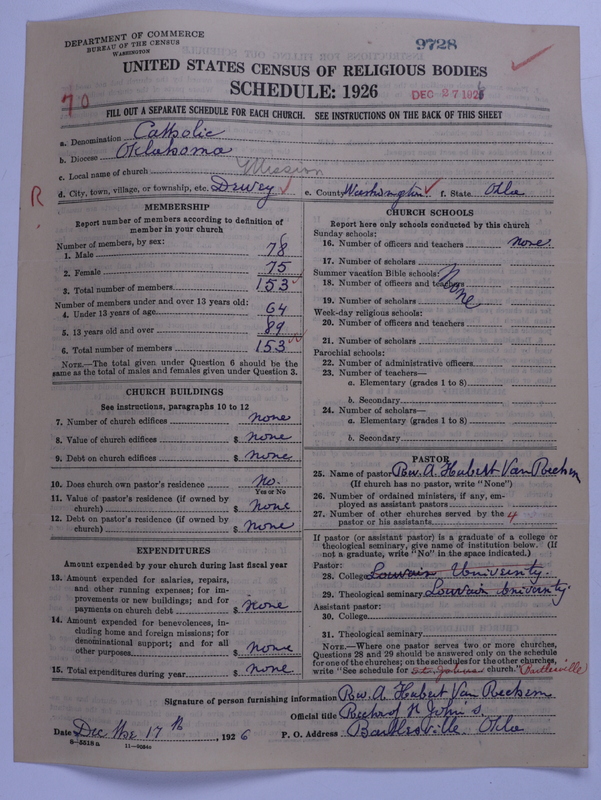 DEPARTMENT OF COMMERCE
BUREAU OF THE CENSUS
WASHINGTON
9728
UNITED STATES CENSUS OF RELIGIOUS BODIES
SCHEDULE: 1926
DEC 27 1926
70
FILL OUT A SEPARATE SCHEDULE FOR EACH CHURCH. SEE INSTRUCTIONS ON THE BACK OF THIS SHEET
a. Denomination Catholic
b. Diocese Oklahoma
c. Local name of church Mission
R
d. City, town, village, or township, etc. Dewey e. County Washington f. State Okla
MEMBERSHIP
Report number of members according to definition of
member in your church
Number of members, by sex:
1. Male 78
2. Female 75
3. Total number of members 153
Number of members under and over 13 years old:
4. Under 13 years of age 64
5. 13 years old and over 89
6. Total number of members 153
NOTE.—The total given under Question 6 should be the
same as the total of males and females given under Question 3.
CHURCH BUILDINGS
See instructions, paragraphs 10 to 12
7. Number of church edifices none
8. Value of church edifices $ none
9. Debt on church edifices $ none
10. Does church own pastor's residence no.
Yes or No
11. Value of pastor's residence (if owned by
church) $ none
12. Debt on pastor's residence (if owned by
church) $ none
EXPENDITURES
Amount expended by your church during last fiscal year
13. Amount expended for salaries, repairs,
and other running expenses; for im-
provements or new buildings; and for
payments on church debt $ none
14. Amount expended for benevolences, in-
cluding home and foreign missions; for
denominational support; and for all
other purposes $ none
15. Total expenditures during year $ none
CHURCH SCHOOLS
Report here only schools conducted by this church
Sunday schools:
16. Number of officers and teachers none
17. Number of scholars
Summer vacation Bible schools:
18. Number of officers and teachers None
19. Number of scholars
Week-day religious schools:
20. Number of officers and teachers
21. Number of scholars
Parochial schools:
22. Number of administrative officers
23. Number of teachers—
a. Elementary (grades 1 to 8)
b. Secondary
24. Number of scholars—
a. Elementary (grades 1 to 8)
b. Secondary
PASTOR
25. Name of pastor Rev. A. Hubert Van Rechem
(If church has no pastor, write "None")
26. Number of ordained ministers, if any, em-
ployed as assistant pastors
27. Number of other churches served by the 4
pastor or his assistants
If pastor (or assistant pastor) is a graduate of a college or
theological seminary, give name of institution below. (If
not a graduate, write "No" in the space indicated.)
Pastor:
28. College Louvain University.
29. Theological seminary Louvain University.
Assistant pastor:
30. College
31. Theological seminary
NOTE.—Where one pastor serves two or more churches,
Questions 28 and 29 should be answered only on the schedule
for one of the churches; on the schedules for the other churches,
write "See schedule for St. Johns church." Bartlesville
Signature of person furnishing information Rev. A Hubert Van Rechem
Official title Rector of St John's.
Date Dec the 17th, 1926 P. O. Address Bartlesville Okla
8—5518 a